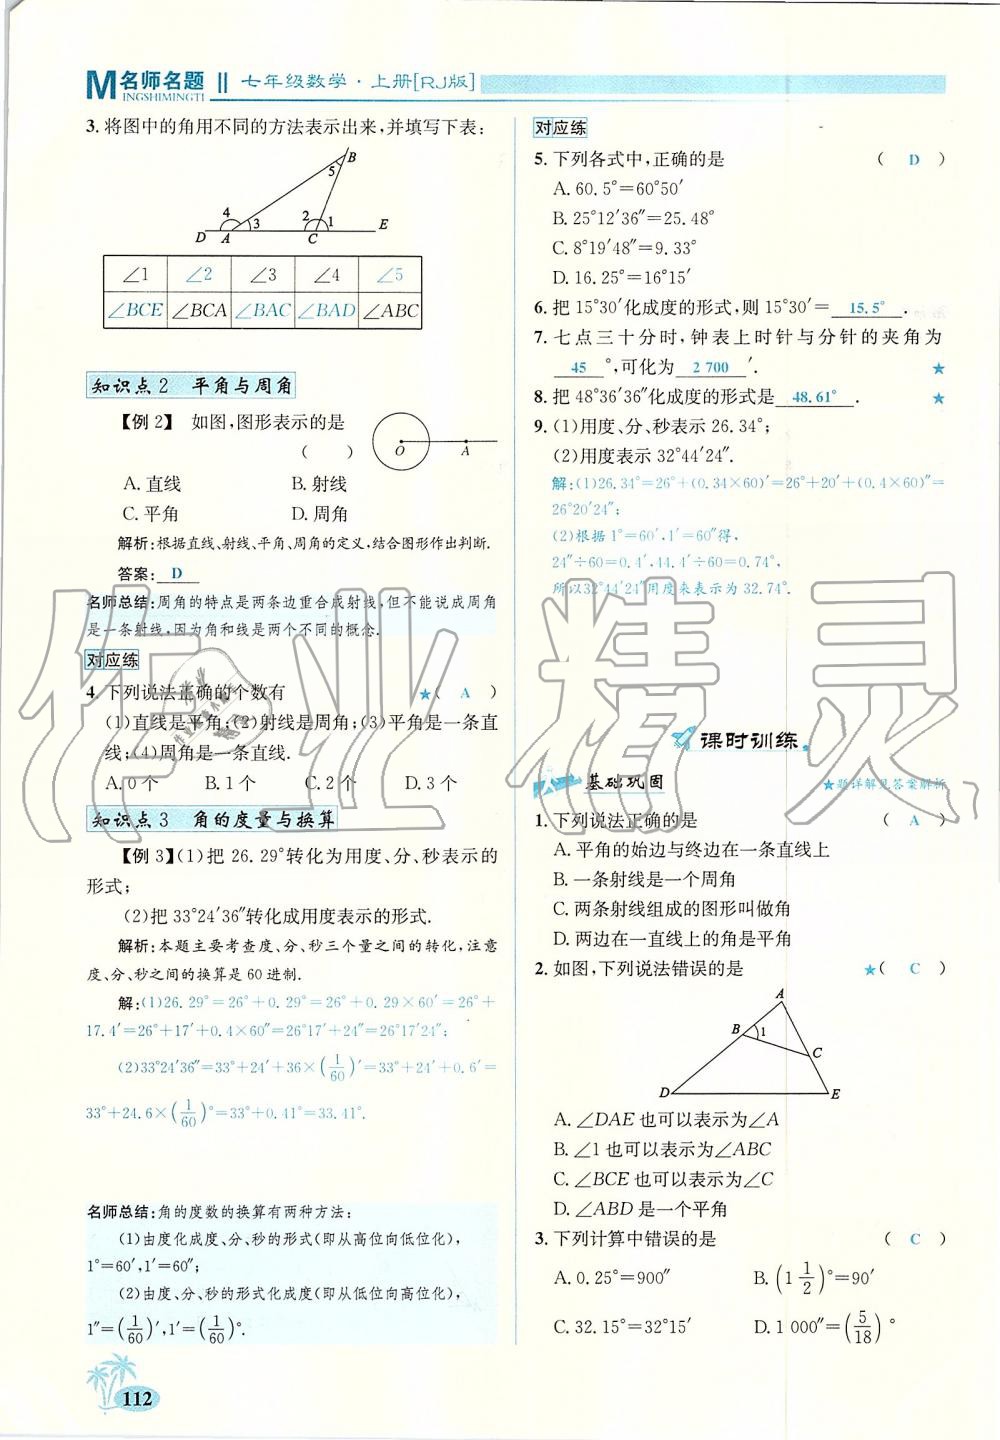 M名师名题 七年级数学·上册[RJ版]
INGSHIMINGTI
3. 将图中的角用不同的方法表示出来,并填写下表:
B
5
4
3
2
1
D A C E
∠1 ∠2 ∠3 ∠4 ∠5
∠BCE ∠BCA ∠BAC ∠BAD ∠ABC
知识点 2 平角与周角
【例 2】 如图,图形表示的是
( )
O A
A. 直线 B. 射线
C. 平角 D. 周角
解析:根据直线、射线、平角、周角的定义,结合图形作出判断.
答案: D
名师总结:周角的特点是两条边重合成射线,但不能说成周角
是一条射线,因为角和线是两个不同的概念.
对应练
4. 下列说法正确的个数有 ★( A )
(1)直线是平角;(2)射线是周角;(3)平角是一条直
线;(4)周角是一条直线.
A. 0 个 B. 1 个 C. 2 个 D. 3 个
知识点 3 角的度量与换算
【例 3】(1)把 26.29°转化为用度、分、秒表示的
形式;
(2)把 33°24′36″转化成用度表示的形式.
解析:本题主要考查度、分、秒三个量之间的转化,注意
度、分、秒之间的换算是 60 进制.
解:(1)26.29°=26°+0.29°=26°+0.29×60′=26°+
17.4′=26°+17′+0.4×60″=26°17′+24″=26°17′24″;
(2)33°24′36″=33°+24′+36×(1/60)′=33°+24′+0.6′=
33°+24.6×(1/60)°=33°+0.41°=33.41°.
名师总结:角的度数的换算有两种方法:
(1)由度化成度、分、秒的形式(即从高位向低位化),
1°=60′,1′=60″;
(2)由度、分、秒的形式化成度(即从低位向高位化),
1″=(1/60)′,1′=(1/60)°.
112
对应练
5. 下列各式中,正确的是 ( D )
A. 60.5°=60°50′
B. 25°12′36″=25.48°
C. 8°19′48″=9.33°
D. 16.25°=16°15′
6. 把 15°30′化成度的形式,则 15°30′= 15.5° .
7. 七点三十分时,钟表上时针与分针的夹角为
45 °,可化为 2 700 ′. ★
8. 把 48°36′36″化成度的形式是 48.61° . ★
9. (1)用度、分、秒表示 26.34°;
(2)用度表示 32°44′24″.
解:(1)26.34°=26°+(0.34×60)′=26°+20′+(0.4×60)″=
26°20′24″;
(2)根据 1°=60′,1′=60″得,
24″÷60=0.4′,44.4′÷60=0.74°,
所以32°44′24″用度来表示为 32.74°.
课时训练
基础巩固 ★题详解见答案解析
1. 下列说法正确的是 ( A )
A. 平角的始边与终边在一条直线上
B. 一条射线是一个周角
C. 两条射线组成的图形叫做角
D. 两边在一直线上的角是平角
2. 如图,下列说法错误的是 ★( C )
A
B 1
C
D E
A. ∠DAE 也可以表示为∠A
B. ∠1 也可以表示为∠ABC
C. ∠BCE 也可以表示为∠C
D. ∠ABD 是一个平角
3. 下列计算中错误的是 ( C )
A. 0.25°=900″ B. (1 1/2)°=90′
C. 32.15°=32°15′ D. 1 000″=(5/18)°
作业精灵